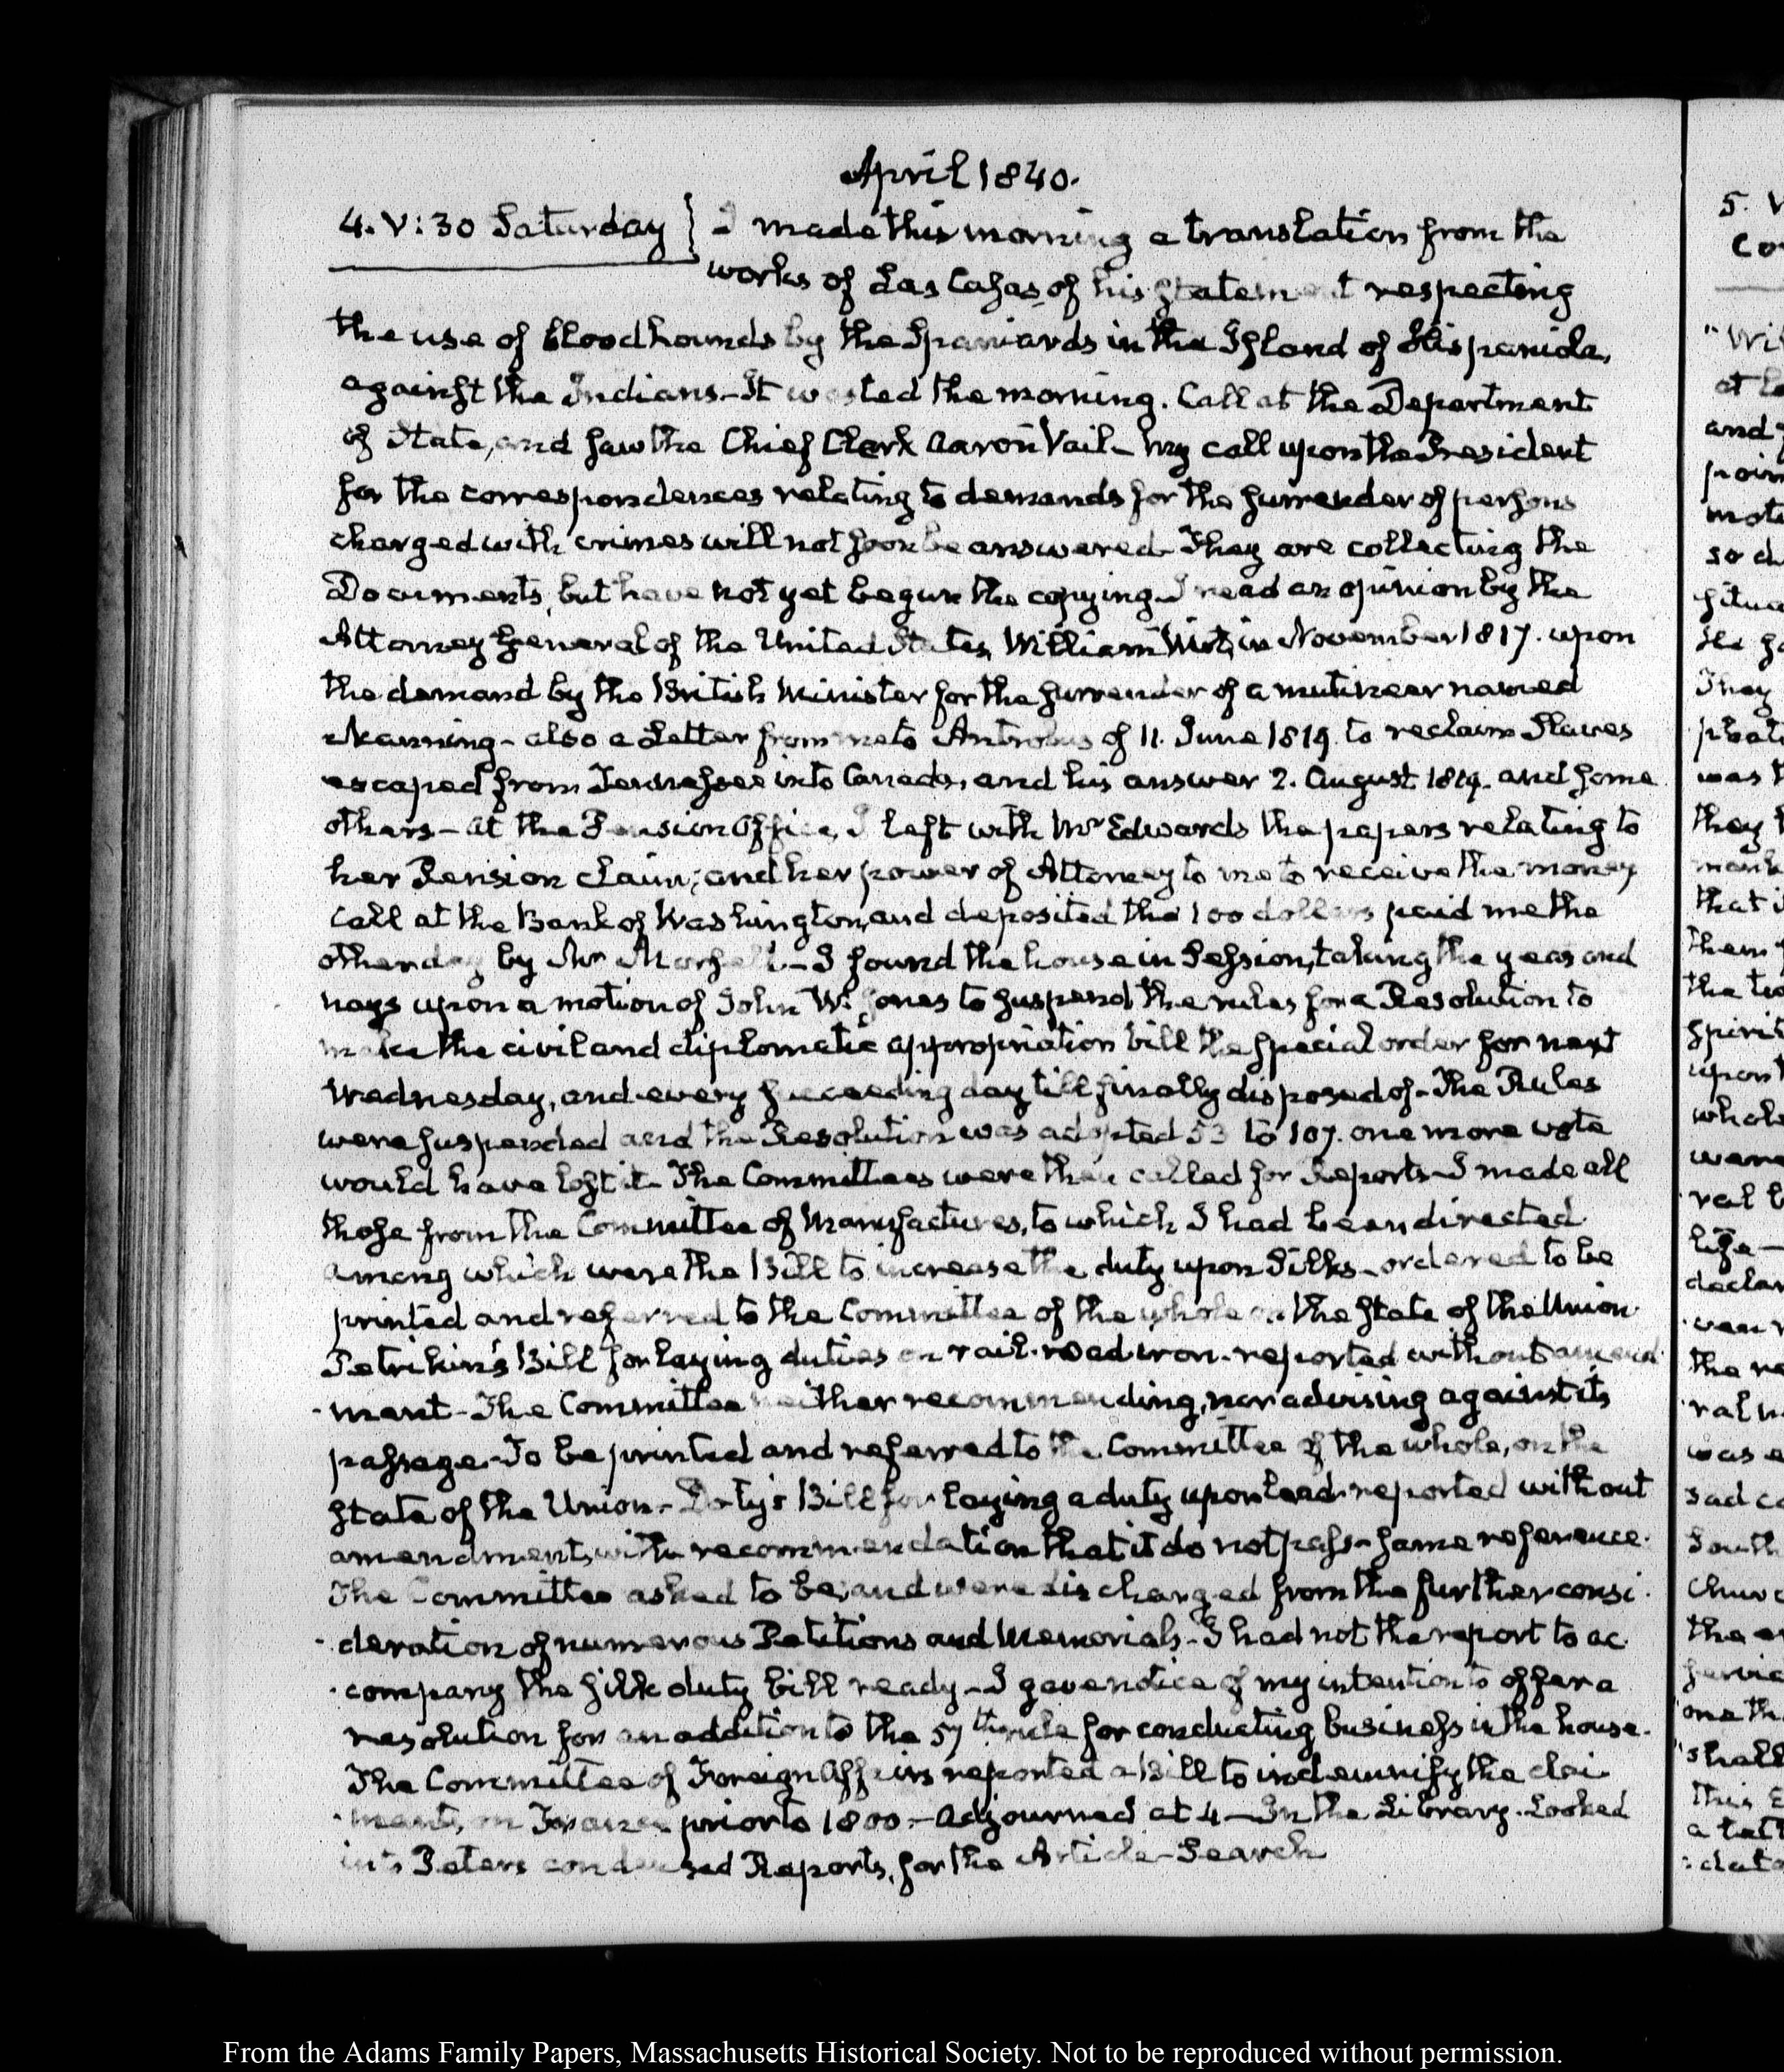 April 1840.
4. V:30 Saturday } I made this morning a translation from the
works of Las Casas, of his statement respecting
the use of bloodhounds by the Spaniards in the Island of Hispaniola,
against the Indians. It wasted the morning. Call at the Department
of State, and saw the Chief Clerk Aaron Vail. My call upon the President
for the correspondences relating to demands for the surrender of persons
charged with crimes will not soon be answered. They are collecting the
Documents, but have not yet begun the copying. I read an opinion by the
Attorney General of the United States, William Wirt, in November 1817. upon
the demand by the British Minister for the surrender of a mutineer named
Manning - also a Letter from me to Antrobus of 11. June 1819. to reclaim Slaves
escaped from Tennessee into Canada, and his answer 2. August 1819. and some
others - at the Pension Office, I left with Mr Edwards the papers relating to
her Pension claim; and her power of Attorney to me to receive the money
Call at the Bank of Washington, and deposited the 100 dollars paid me the
other day by Mr - I found the house in Session, taking the yeas and
nays upon a motion of John W. Jones to suspend the rules for a Resolution to
make the civil and diplomatic appropriation bill the special order for next
Wednesday, and every succeeding day till finally disposed of - The Rules
were suspended and the Resolution was adopted 53 to 107. one more vote
would have lost it. The Committees were then called for Reports - I made all
those from the Committee of Manufactures, to which I had been directed
among which were the Bill to increase the duty upon Silks - ordered to be
printed and referred to the Committee of the whole on the state of the Union.
Petrikin's Bill for laying duties on rail-road iron - reported without amend
-ment - The Committee neither recommending, nor advising against its
passage. To be printed and referred to the Committee of the whole, on the
state of the Union. - Doty's Bill for laying a duty upon lead - reported without
amendment, with recommendation that it do not pass - same reference.
The Committee asked to be, and were discharged from the further consi
-deration of numerous Petitions and Memorials - I had not the report to ac
-company the silk duty bill ready - I gave notice of my intention to offer a
resolution for an addition to the 57th rule for conducting business in the house.
The Committee of Foreign Affairs reported a Bill to indemnify the clai
-mants, on France prior to 1800. - Adjourned at 4 - In the Library. Looked
into Peters condensed Reports, for the Article - Search
5. V
Co
"Wi
at
and
poin
mot
so
situa
He
They
was
they
that
them
the
spirit
upon
whole
were
ral
life -
declar
the
was
sad
South
the
one
shall
this
a